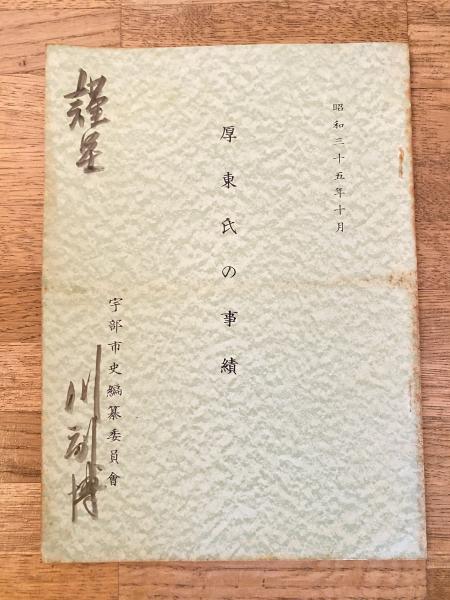 昭和三十五年十月
厚東氏の事績
宇部市史編纂委員會
謹呈
川副博